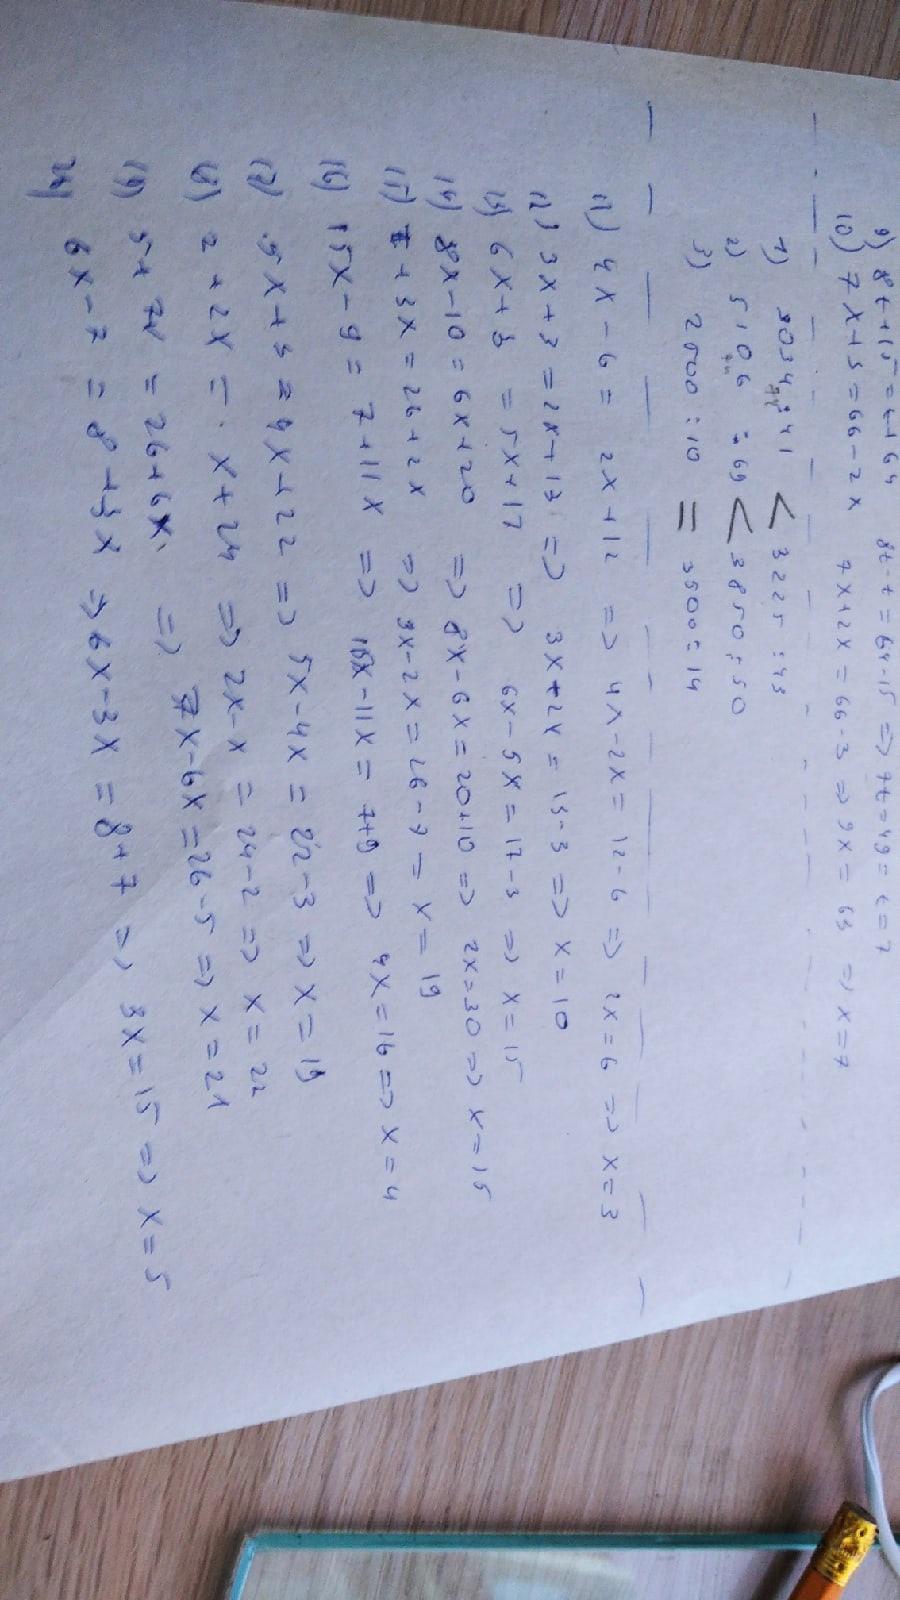 9) 8t+15=t+64 8t-t=64-15 => 7t=49= t=7
10) 7x+3=66-2x 7x+2x=66-3 => 9x=63 => x=7
1) 3034:41 < 3225:43
2) 5106:69 < 3850:50
3) 2500:10 = 3500:14
11) 4x-6= 2x+12 => 4x-2x=12-6 => 2x=6 => x=3
12) 3x+3=2x+13 => 3x+2x=13-3 => x=10
13) 6x+3 =5x+17 => 6x-5x=17-3 => x=15
14) 8x-10=6x+20 => 8x-6x=20+10 => 2x=30 => x=15
15) 7+3x=26+2x => 3x-2x=26-7= x=19
16) 15x-9= 7+11x => 15x-11x= 7+9 => 4x=16 => x=4
17) 5x+3=4x+22 => 5x-4x=22-3 => x=19
18) 2+2x= x+24 => 2x-x=24-2 => x=22
19) 5+7x=26+6x => 7x-6x=26-5 => x=21
20) 6x-7=8+3x => 6x-3x=8+7 => 3x=15 => x=5